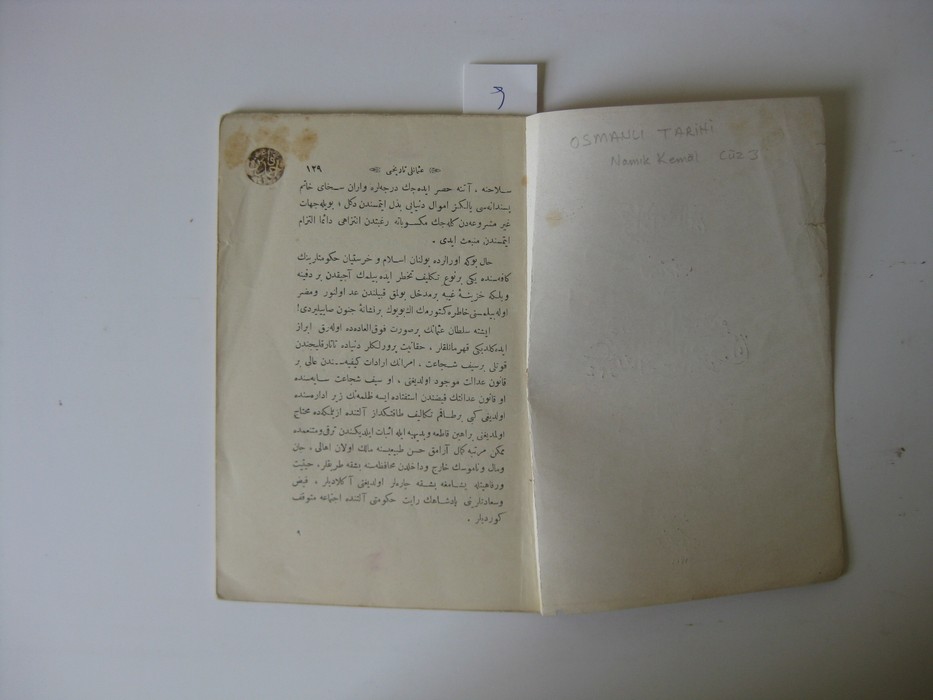 OSMANLI TARİHİ
Namık Kemal Cüz 3
١٢٩ عثمانلی تاریخی
سلاحنه ، آتنه حصر ایده‌جك درجه‌لره واران سخای خاتم
پسندانه‌سی یالكز اموال دنیایی بذل ایتمسندن دكل ؛ بویله جهات
غیر مشروعه‌دن كله‌جك مكسوباته رغبتدن انتزاهی دائما التزام
ایتمسندن منبعث ایدی .
حال بوكه اورالرده بولنان اسلام و خرستیان حكومتلرینك
كافه‌سنده یكی برنوع تكلیف تخطر ایده‌بیلمك آجیقدن بر دفینه
وبلكه خزینهٔ غیبه برمدخل بولمق قبیلندن عد اولنور ومضر
اوله‌بیلمسنی خاطره كتورمك اك بویوك برنشانهٔ جنون صاییلیردی!
ایشته سلطان عثمانك برصورت فوق العاده‌ده اوله‌رق ابراز
ایده‌كلدیكی قهرمانلقلر ، حقانیت پرورلكلر دنیاده تاتار قلیجندن
قوتلی برسیف شجاعت ، امرانك ارادات كیفیه‌سندن عالی بر
قانون عدالت موجود اولدیغنی ، او سیف شجاعت سایه‌سنده
او قانون عدالتك فیضندن استفاده ایسه ظلمه‌نك زیر اداره‌سنده
اولدیغی كبی برطاقم تكالیف طاقتكداز آلتنده ازیلمكده محتاج
اولمدیغنی براهین قاطعه وبدیهیه ایله اثبات ایلدیكندن ترقی ومتنعمده
ممكن مرتبه كمال آرامق حسن طبیعیسنه مالك اولان اهالی ، جان
ومال وناموسك خارج وداخلدن محافظه‌سنه بشقه طریقلر ، حیثیت
ورفاهیتله یشامغه بشقه چاره‌لر اولدیغنی آكلادیلر . فیض
وسعادتلرینی پادشاهك رایت حكومتی آلتنده اجتماعه متوقف
كوردیلر .
٩